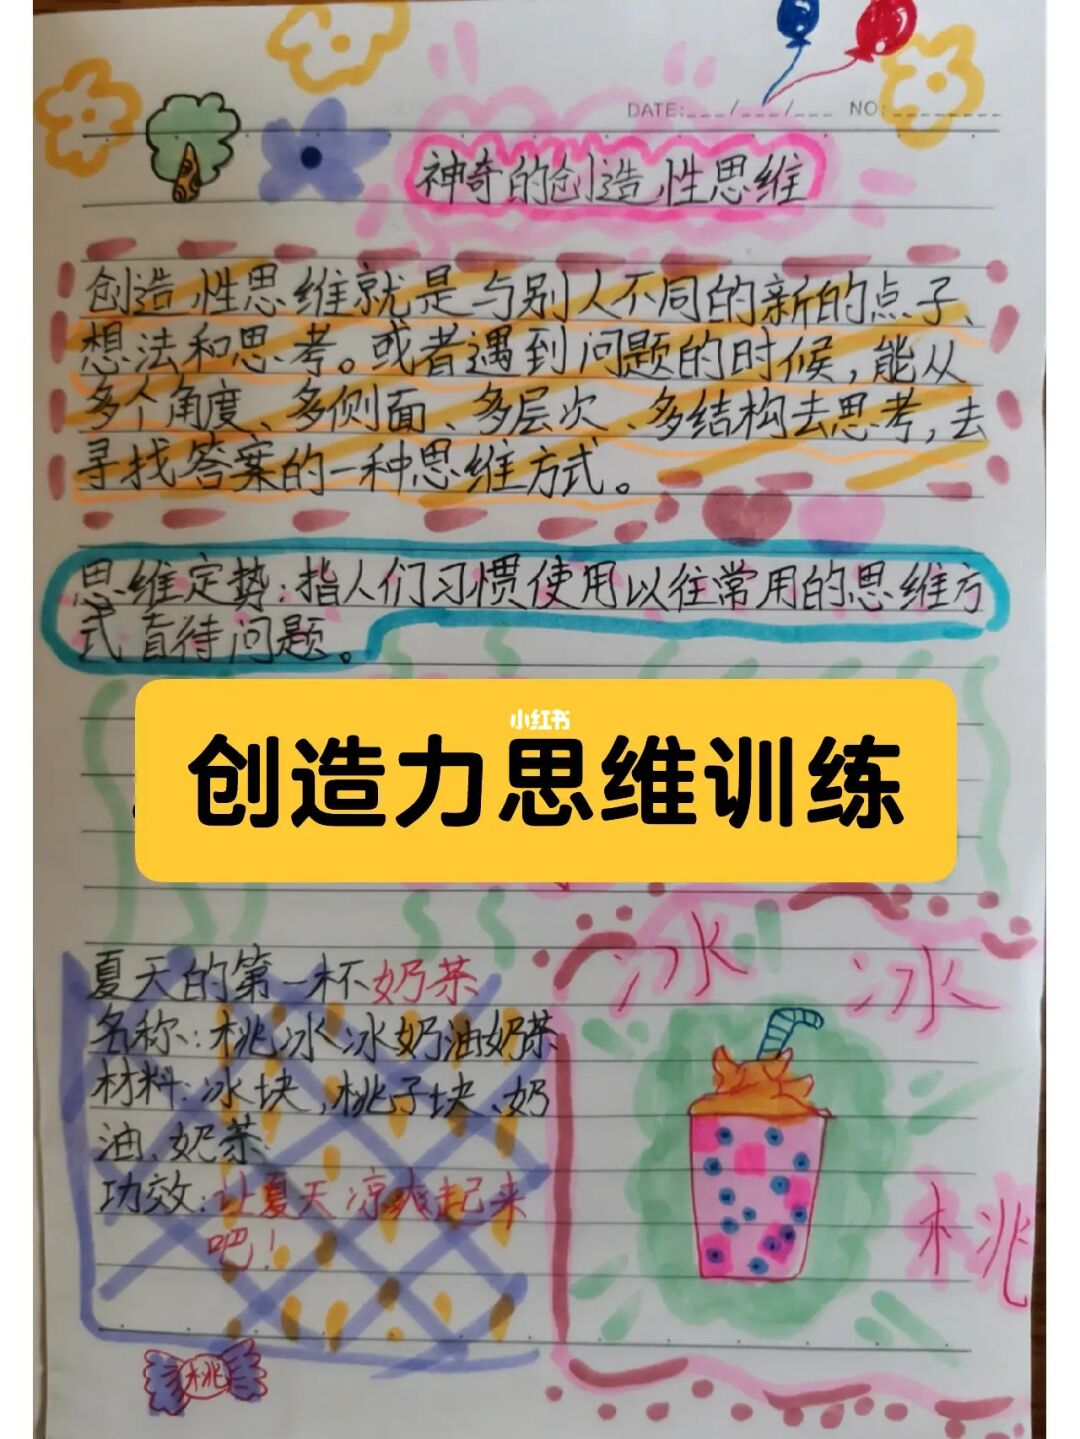 DATE:___/___/___ NO:
神奇的创造性思维
创造性思维就是与别人不同的新的点子、
想法和思考。或者遇到问题的时候,能从
多个角度、多侧面、多层次、多结构去思考,去
寻找答案的一种思维方式。
思维定势:指人们习惯使用以往常用的思维方
式直待问题。
小红书
创造力思维训练
夏天的第一杯奶茶
名称:桃冰冰奶油奶茶
材料:冰块,桃子块、奶
油、奶茶
功效:让夏天凉爽起来
吧!
冰 冰
桃
桃